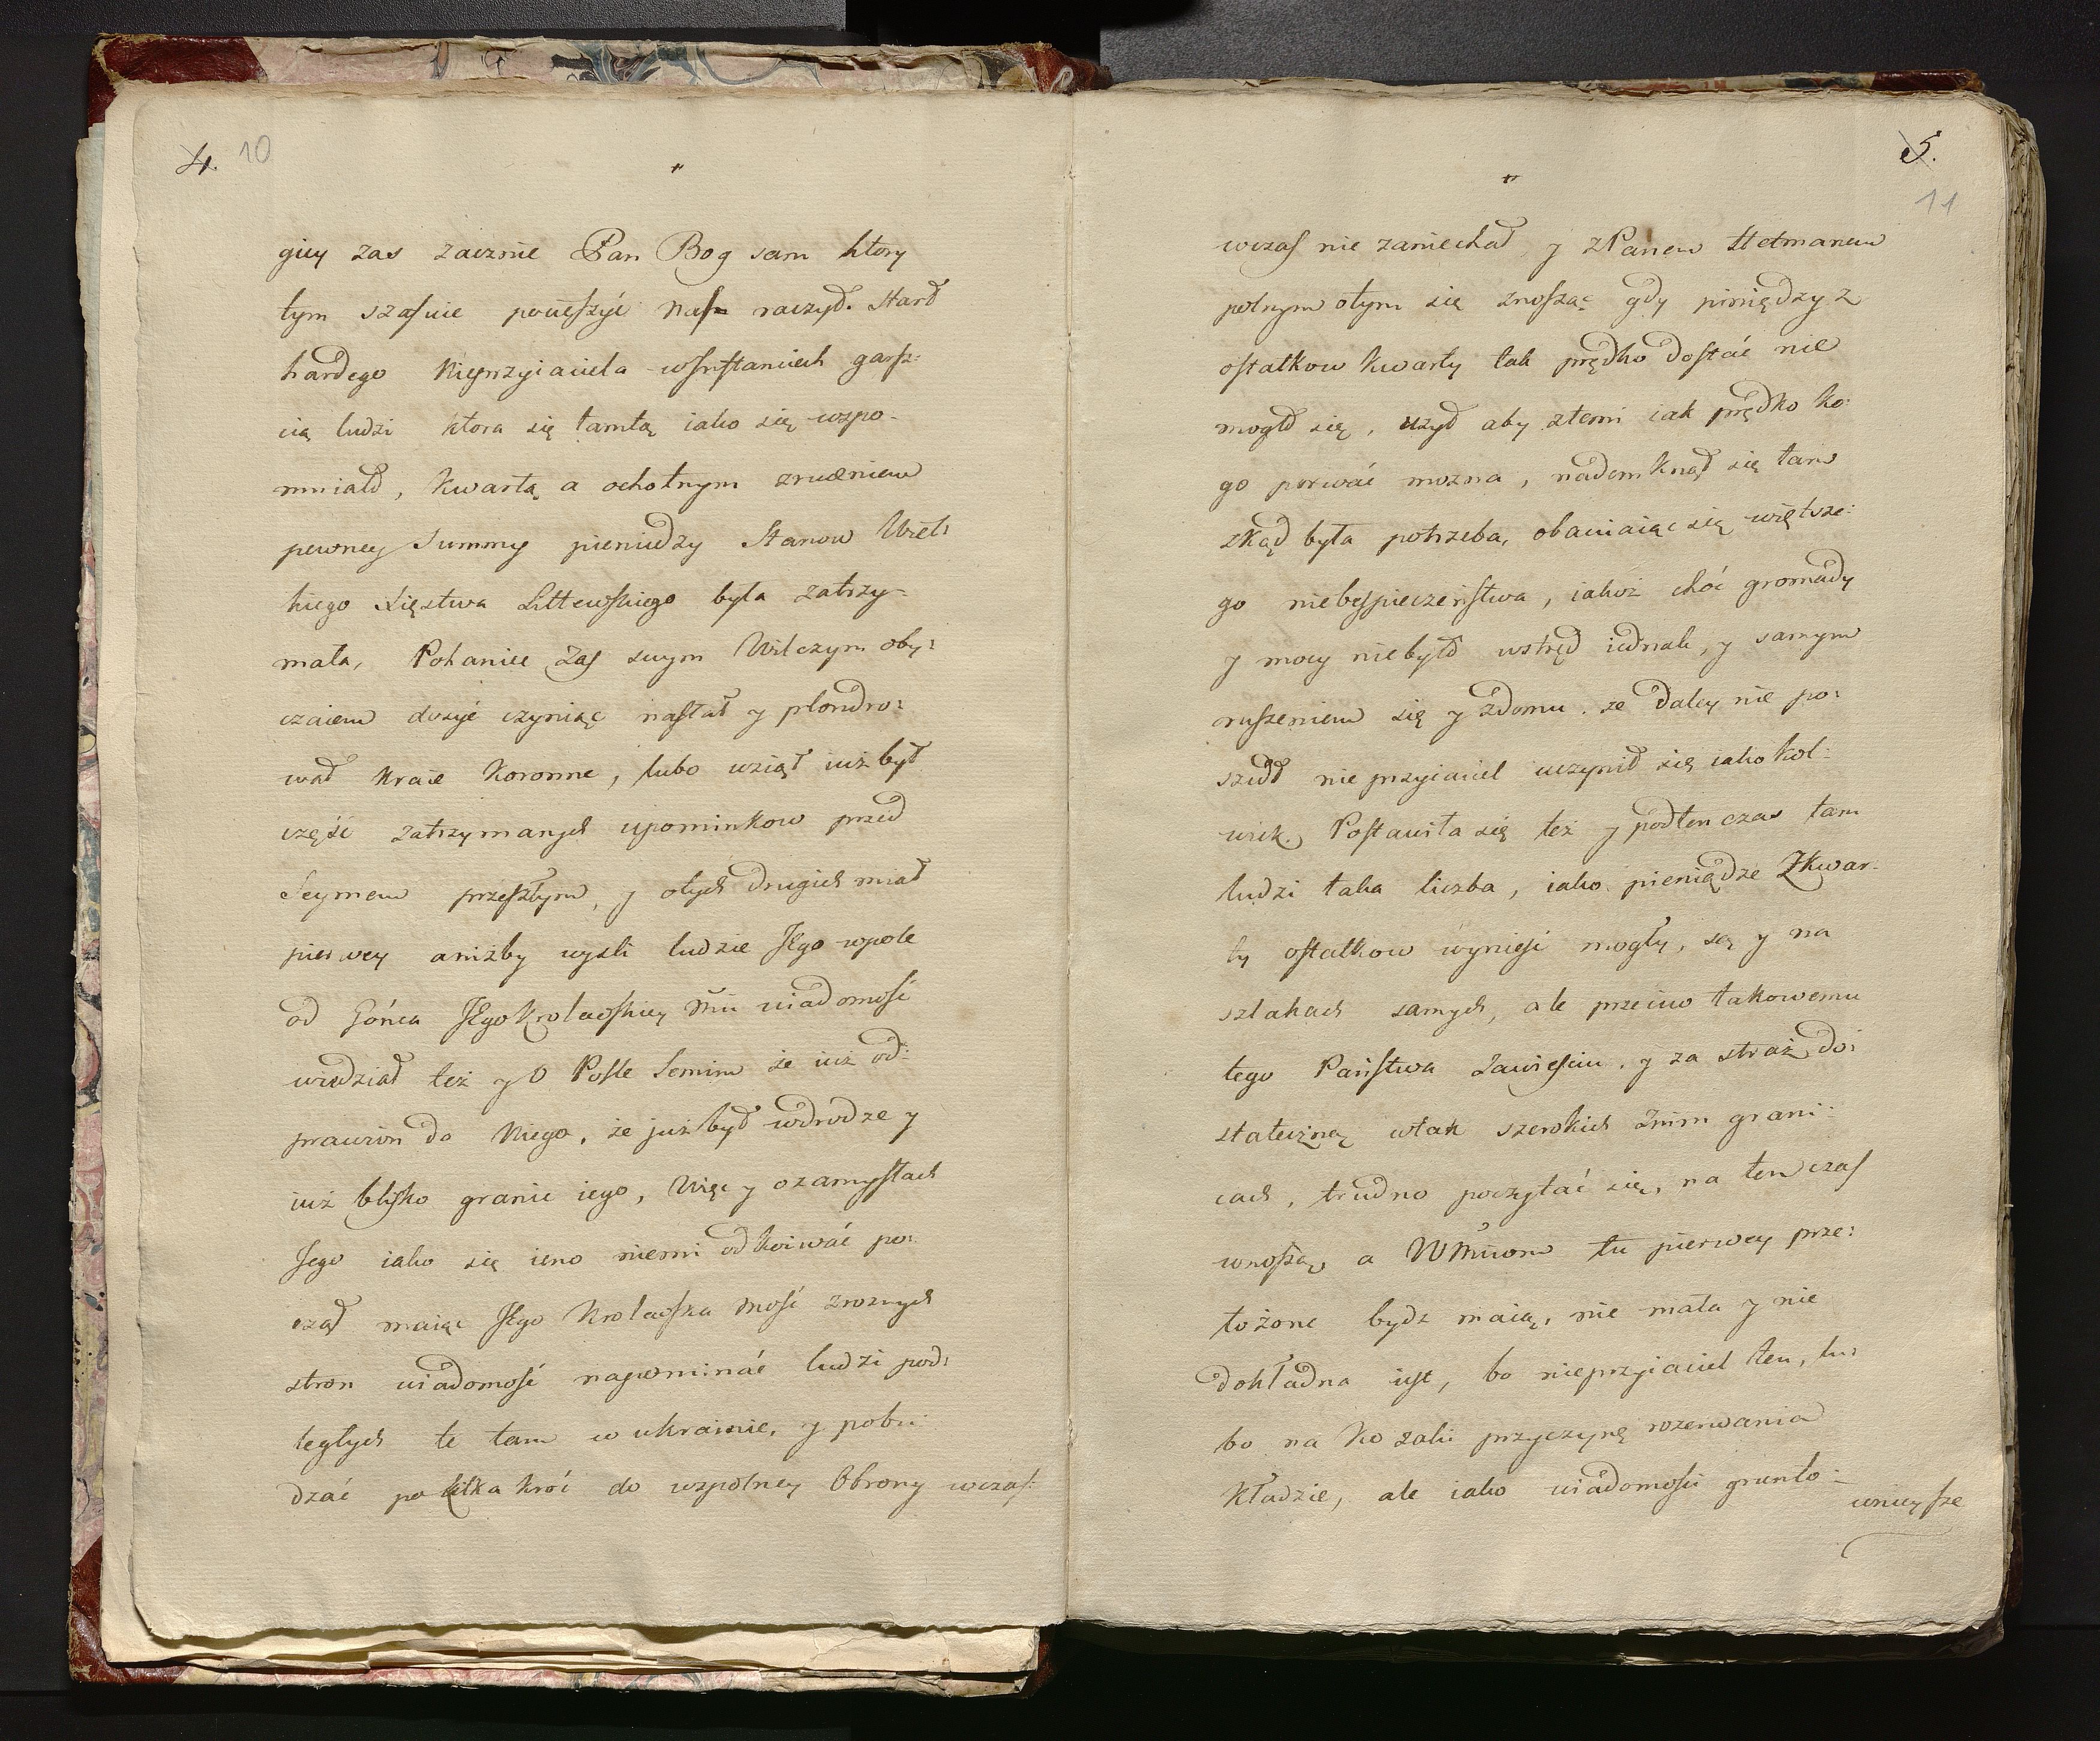 4. 10
giey zas zacznie Pan Bog sam ktory
tym szasnie pocieszyć nas raczył. Starł
hardego Nieprzyiaciela gars:
cią ludzi ktora się tamtą iako się wzpo-
mniało, Kwartą a ochotnym
pewney Summy pieniedzy Stanow Wiel:
kiego Xięstwa Littewskiego była zatrzy-
mala, Pohaniec Zas swym Wilczym oby:
czaiem dosyć czyniąc nastał y plondro:
wał Kraie Koronne, lubo wziął iuż był
część zatrzymanych upominkow przed
Seymem przeszłym, y otych drugich miał
pierwey aniżby wyszli ludzie JEgo wpole
od Gónca JEgo Krolewskiey Mci wiadomość
wiedział też y O Posle Lemim że iuż od:
prawion do Niego, że już był wdrodze y
iuż blisko granic iego, Więc y ozamysłach
Jego iako się ieno niemi odkriwać po:
czął maiąc JEgo Krolewska Mość zroznych
stron wiadomość napominać ludzi pod:
ległych te tam w ukrainie, y pobu:
dzać po kilka kroć do wzpolney Obrony wczas:
5.
11
wczas nie zaniechał, y zPanem Hetmanem
polnym otym się znosząc gdy pieniędzy z
ostatkow kwarty tak prędko dostać nie
mogło się, użył aby ztemi iak prędko ko:
go porwać mozna, nademknął się tam
zkąd była potrzeba, obawiaiąc się większe:
go niebespieczeństwa, iakoż choć gromady
y mocy niebyło wstręd iednak, y samym
ruszeniem się y zdomu. ze daley nie po:
szedł nie przyiaciel uczynił się iako kol:
wiek. Postawiła się też y podten czas tam
ludzi taka liczba, iako pieniądze Zkwar:
ty ostatkow wynieść mogły, są y na
szlakach samych, ale przeciwo takowemu
tego Państwa Zawzięciu, y za straż do:
stateczney wtak szerokich Znim grani:
cach, trudno poczytać się, na ten czas
wnoszą, a WMciom tu pierwey prze:
łożone bydz maią, nie mała y nie
dokładna iest, bo nieprzyiaciel ten, lu:
bo na Kozaki przyczynę rozerwania
Kładzie, ale iako wiadomości grunto:
wnieysze